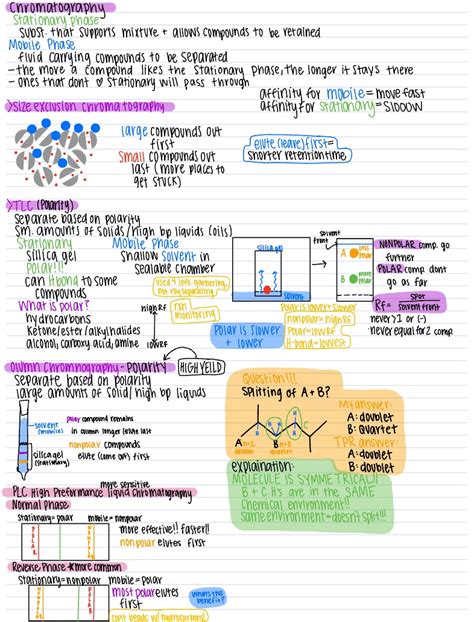 Chromatography
Stationary phase
subst. that supports mixture + allows compounds to be retained
Mobile Phase
fluid carrying compounds to be separated
- the more a compound likes the stationary phase, the longer it stays there
- ones that dont ♡ stationary will pass through
affinity for mobile = move fast
affinity for stationary = slooow
> Size exclusion chromatography
large compounds out
first
Small compounds out
last (more places to
get stuck)
elute (leave) first =
shorter retention time
> TLC (Polarity)
separate based on polarity
sm. amounts of solids/high bp liquids (oils)
Stationary
sillica gel
Polar!!!
can Hbond to some
compounds
Mobile Phase
Shallow solvent in
sealable chamber
used 4 info gathering,
not rxy separating
rxn
monitoring
What is polar?
hydrocarbons
Ketone/ester/alkylhalides
alcohol, carboxy acid, amine
high RF
low RF
sillica gel
solvent
solvent
front
A
less
polar
B
more
polar
Polar is lower + slower
nonpolar = high RF
Polar = low RF
H-bond = lowest
Polar is slower
+ lower
NONPOLAR comp. go
further
POLAR comp. dont
go as far
RF = spot
solvent front
never > 1 or (-)
never equal for 2 comp.
olumn Chromnography - Polarity
HIGH YEILD
separate based on polarity
large amounts of solid/high bp liquids
solvent
(mobile)
sillica gel
(stationary)
polar compound remains
in column longer (elute last
nonpolar compounds
elute (come off) first
Question!!!
splitting of A + B?
My answer:
A: doublet
B: Quartet
TPR answer:
A: doublet
B: doublet
explaination:
MOLECULE IS SYMMETRICAL!!
B + C Hs are in the SAME
Chemical environment!!
Same environment = doesn't split!!!
more sensitive
PLC High Preformance liquid Chromatography
Normal phase
Stationary = polar mobile = nonpolar
POLAR
NONPOLAR
more effective!! faster!!
nonpolar elutes first
Reverse Phase *more common
Stationary = nonpolar mobile = polar
NONPOLAR
POLAR
most polar elutes
first
whats the
benefit?
coat beads w/ hydrocarbons!